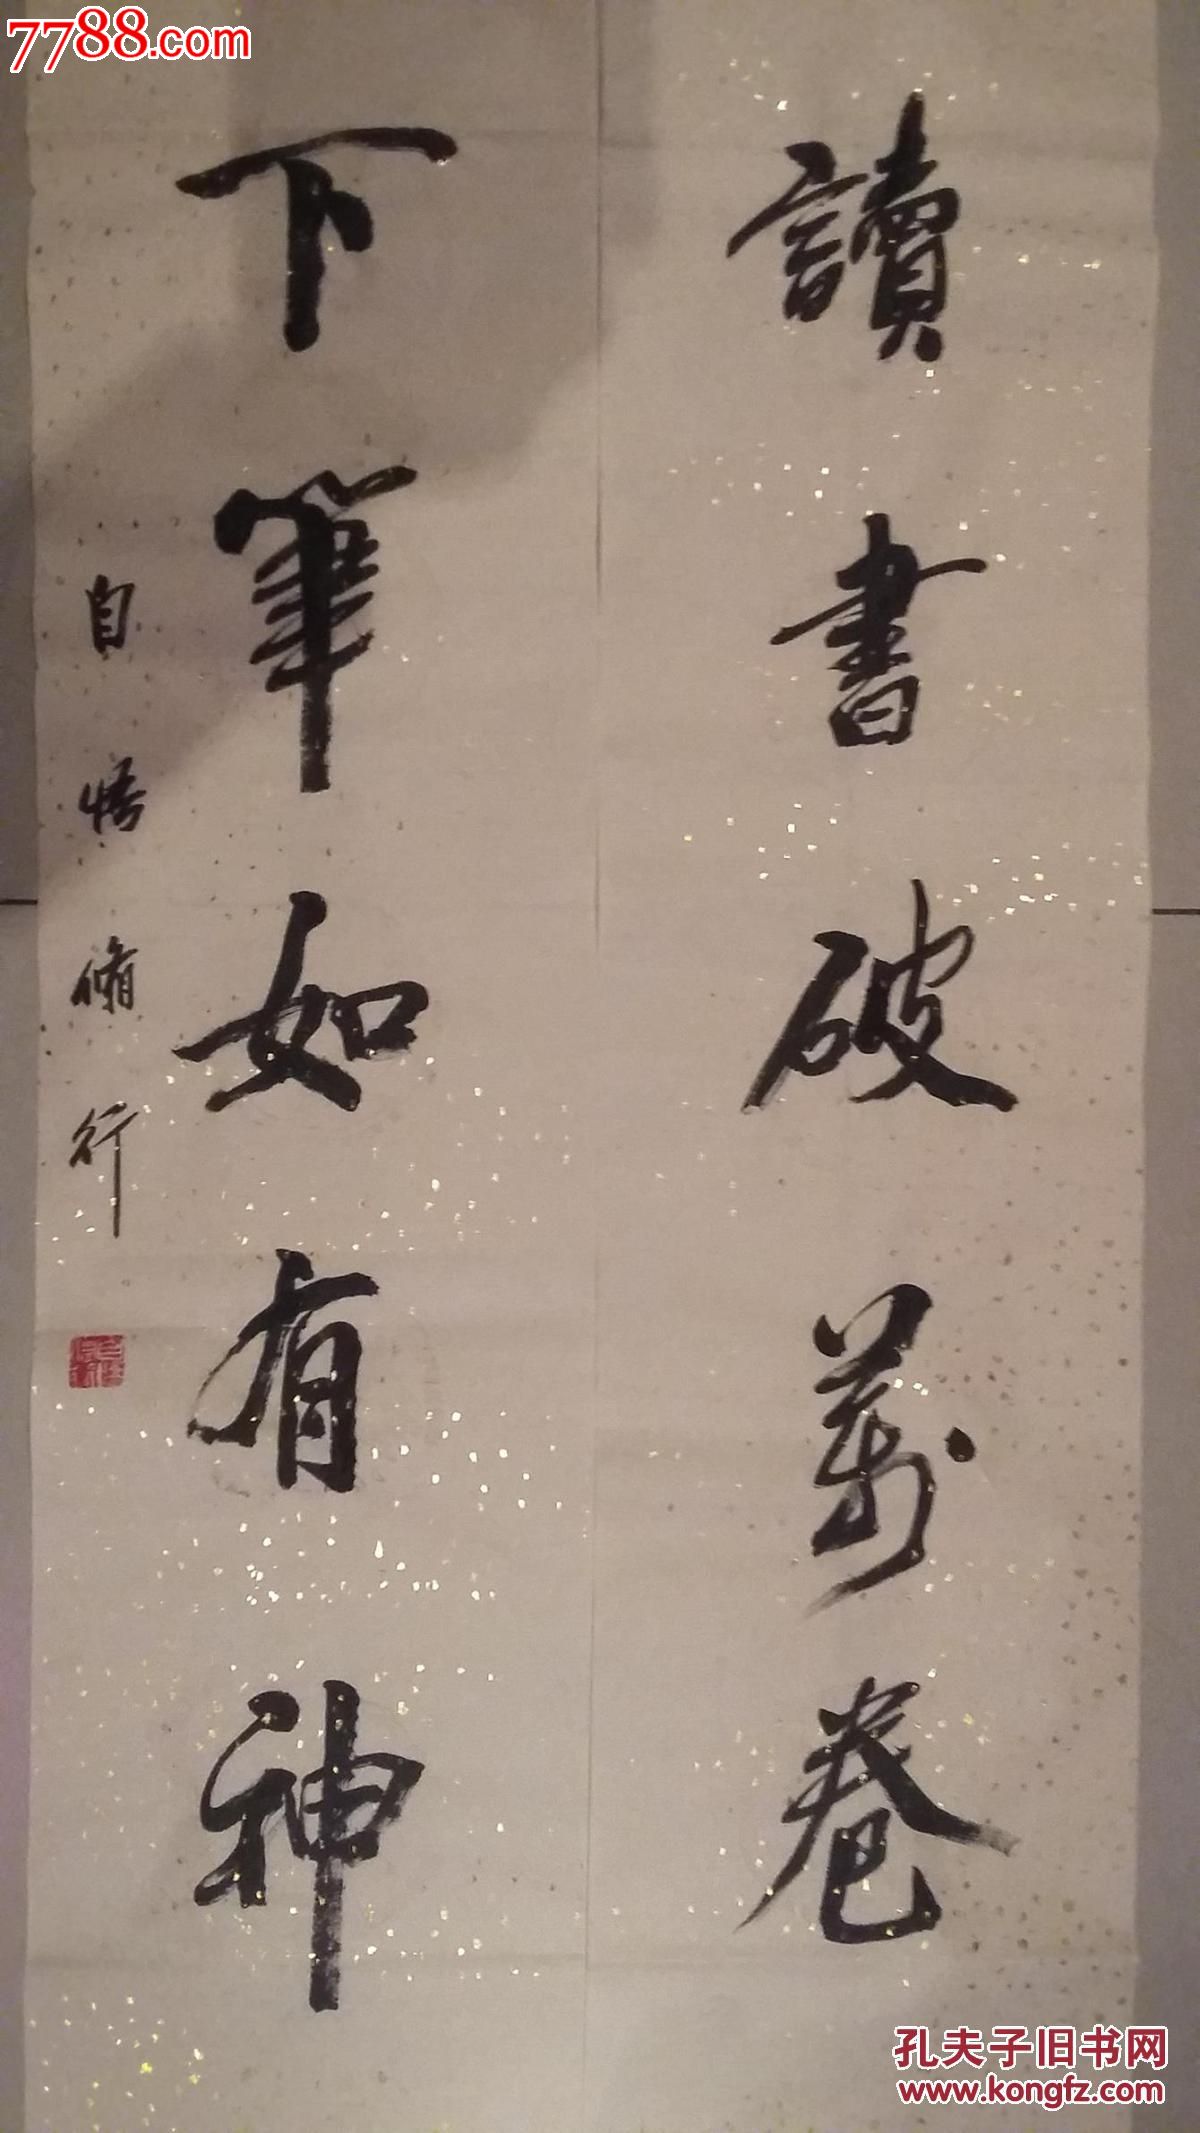 7788.com
讀書破萬卷
下筆如有神
自悟脩行
孔夫子旧书网
www.kongfz.com